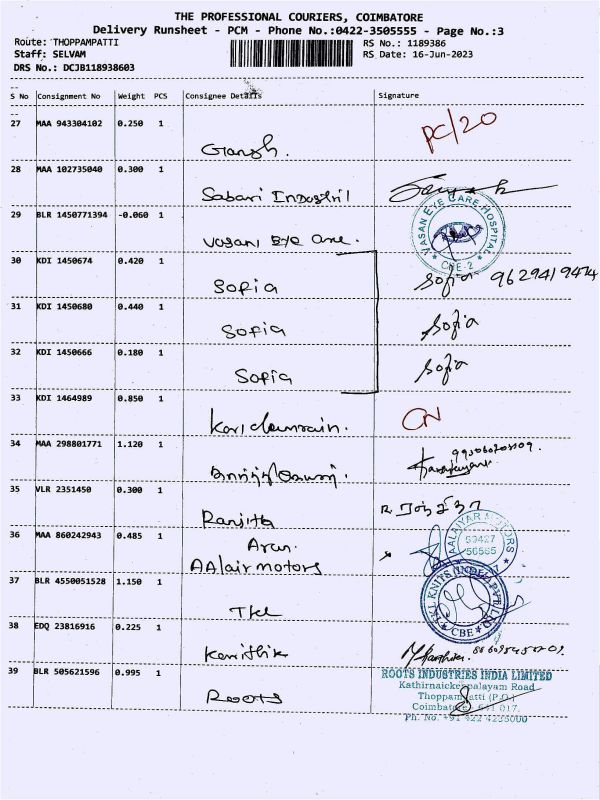 THE PROFESSIONAL COURIERS, COIMBATORE
Delivery Runsheet - PCM - Phone No.:0422-3505555 - Page No.:3
Route: THOPPAMPATTI
RS No.: 1189386
Staff: SELVAM
RS Date: 16-Jun-2023
DRS No.: DCJB118938603
S No Consignment No Weight PCS Consignee Details Signature
27 MAA 943304102 0.250 1
PC/20
Ganesh.
28 MAA 102735040 0.300 1
Sabari Industril
29 BLR 1450771394 -0.060 1
VASAN EYE CARE HOSPITAL
CBE-2
Vasani Eye care.
30 KDI 1450674 0.420 1
Sofia Sofia 9629419474
31 KDI 1450680 0.440 1
Sofia Sofia
32 KDI 1450666 0.180 1
Sofia Sofia
33 KDI 1464989 0.850 1
CN
34 MAA 298801771 1.120 1
35 VLR 2351450 0.300 1
Ranjith
36 MAA 860242943 0.485 1
Arun.
AAlair motors
AALAIYAR MOTORS
90427
56565
37 BLR 4550051528 1.150 1
TKL
TKL KNITS INDIA PVT LTD
CBE
38 EDQ 23816916 0.225 1
Karithik
39 BLR 505621596 0.995 1
Roots
ROOTS INDUSTRIES INDIA LIMITED
Kathirnaickenpalayam Road
Thoppampatti (P.O.)
Coimbatore - 641 017.
Ph. No. +91 422 4235000